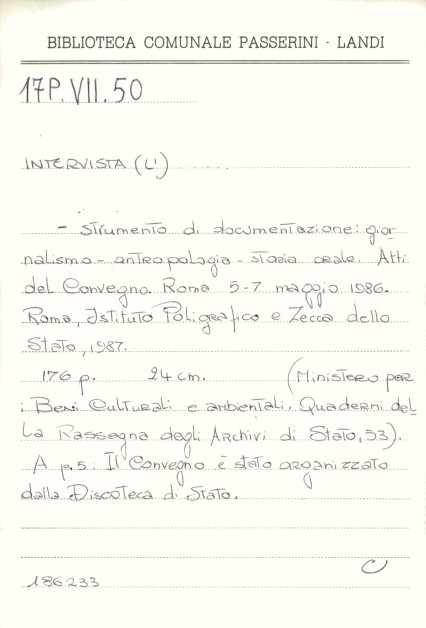 BIBLIOTECA COMUNALE PASSERINI - LANDI
17P.VII.50
INTERVISTA (L')
- strumento di documentazione: gior
nalismo - antropologia - storia orale. Atti
del Convegno. Roma 5-7 maggio 1986.
Roma, Istituto Poligrafico e Zecca dello
Stato, 1987.
176 p. 24 cm. (Ministero per
i Beni Culturali e ambientali. Quaderni del
la Rassegna degli Archivi di Stato, 53).
A p.5: Il Convegno è stato organizzato
dalla Discoteca di Stato.
C
186233